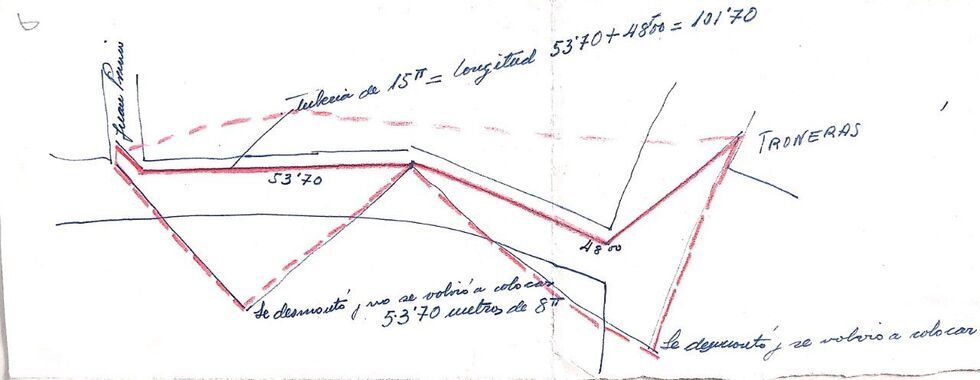 6
Juan Bravo
Tuberia de 15π = Longitud 53'70 + 48'00 = 101'70
TRONERAS
53'70
48'00
Se desmontó y no se volvió a colocar
53'70 metros de 8π
Se desmontó y se volvió a colocar